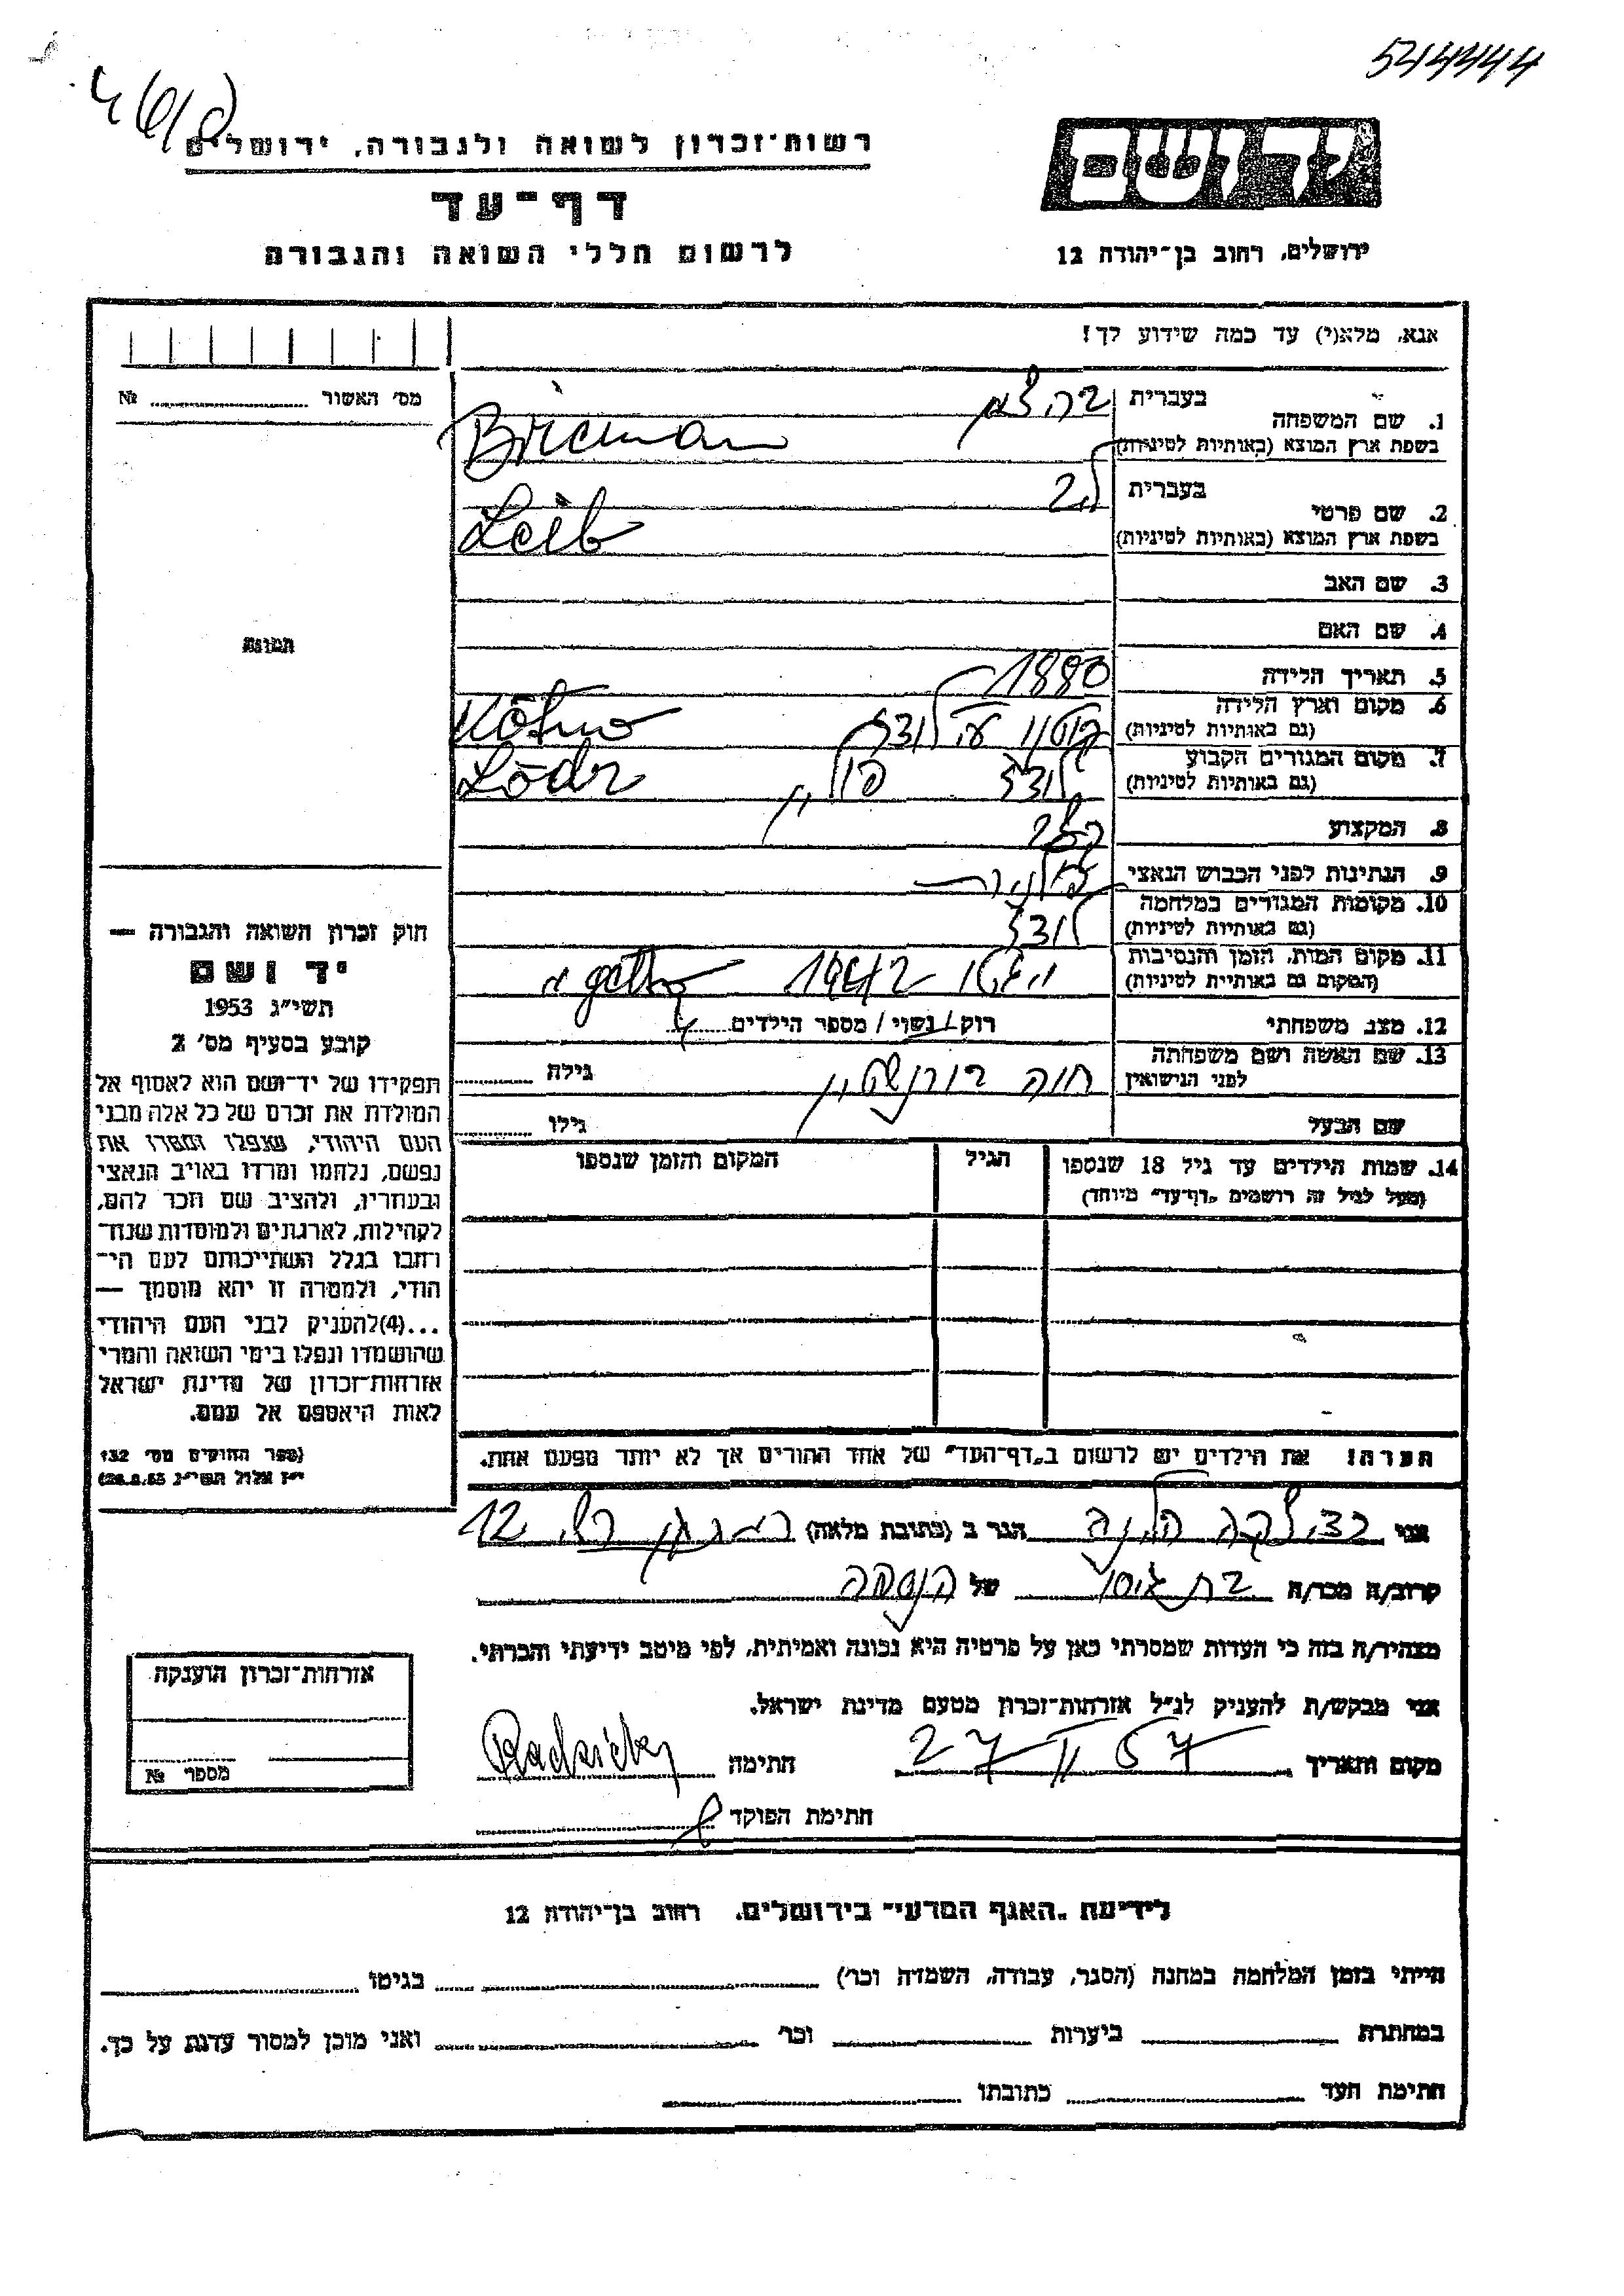 544444
רשות־זכרון לשואה ולגבורה, ירושלים
דף־עד
לרשום חללי השואה והגבורה
ידושם
ירושלים, רחוב בן־יהודה 12
אנא, מלא(י) עד כמה שידוע לך!
מס׳ האשור № 
1. שם המשפחה בעברית
בשפת ארץ המוצא (באותיות לטיניות) Bireman
2. שם פרטי בעברית ליב
בשפת ארץ המוצא (באותיות לטיניות) Leib
3. שם האב
4. שם האם
תמונה
5. תאריך הלידה 1880
6. מקום וארץ הלידה קוטנו על לודז Kōtno
(גם באותיות לטיניות)
7. מקום המגורים הקבוע לודז פולין Lōdz
(גם באותיות לטיניות)
8. המקצוע
9. הנתינות לפני הכבוש הנאצי פולנית
10. מקומות המגורים במלחמה לודז
(גם באותיות לטיניות)
11. מקום המות, הזמן והנסיבות 1942 getto
(המקום גם באותיות לטיניות)
12. מצב משפחתי רוק/נשוי/מספר הילדים
13. שם האשה ושם משפחתה חוה בורנשטיין גילה
לפני הנישואין
שם הבעל גילו
14. שמות הילדים עד גיל 18 שנספו הגיל המקום והזמן שנספו
(מעל לגיל זה רושמים „דף־עד״ מיוחד)
חוק זכרון השואה והגבורה —
יד ושם
תשי״ג 1953
קובע בסעיף מס׳ 2
תפקידו של יד־ושם הוא לאסוף אל
המולדת את זכרם של כל אלה מבני
העם היהודי, שנפלו ומסרו את
נפשם, נלחמו ומרדו באויב הנאצי
ובעוזריו, ולהציב שם וזכר להם,
לקהילות, לארגונים ולמוסדות שנח־
רתבו בגלל השתייכותם לעם הי־
הודי, ולמטרה זו יהא מוסמך —
...(4)להעניק לבני העם היהודי
שהושמדו ונפלו בימי השואה והמרי
אזרחות־זכרון של מדינת ישראל
לאות היאספם אל עמם.
(ספר החוקים מס׳ 132
י״ז אלול תשי״ג 28.8.53)
הערה! את הילדים יש לרשום ב„דף־העד״ של אחד ההורים אך לא יותר מפעם אחת.
אני הגר ב (כתובת מלאה) 12
קרוב/ה מכר/ה בת גיסו של הנספה
מצהיר/ה בזה כי העדות שמסרתי כאן על פרטיה היא נכונה ואמיתית, לפי מיטב ידיעתי והכרתי.
אני מבקש/ת להעניק לנ״ל אזרחות־זכרון מטעם מדינת ישראל.
מקום ותאריך 27 II 57 חתימה
חתימת הפוקד
אזרחות־זכרון הוענקה
מספר №
לידיעת „האגף המדעי״ בירושלים, רחוב בן־יהודה 12
הייתי בזמן המלחמה במחנה (הסגר, עבודה, השמדה וכו׳) בגיטו
במחתרת ביערות וכו׳ ואני מוכן למסור עדות על כך.
חתימת העד כתובתו